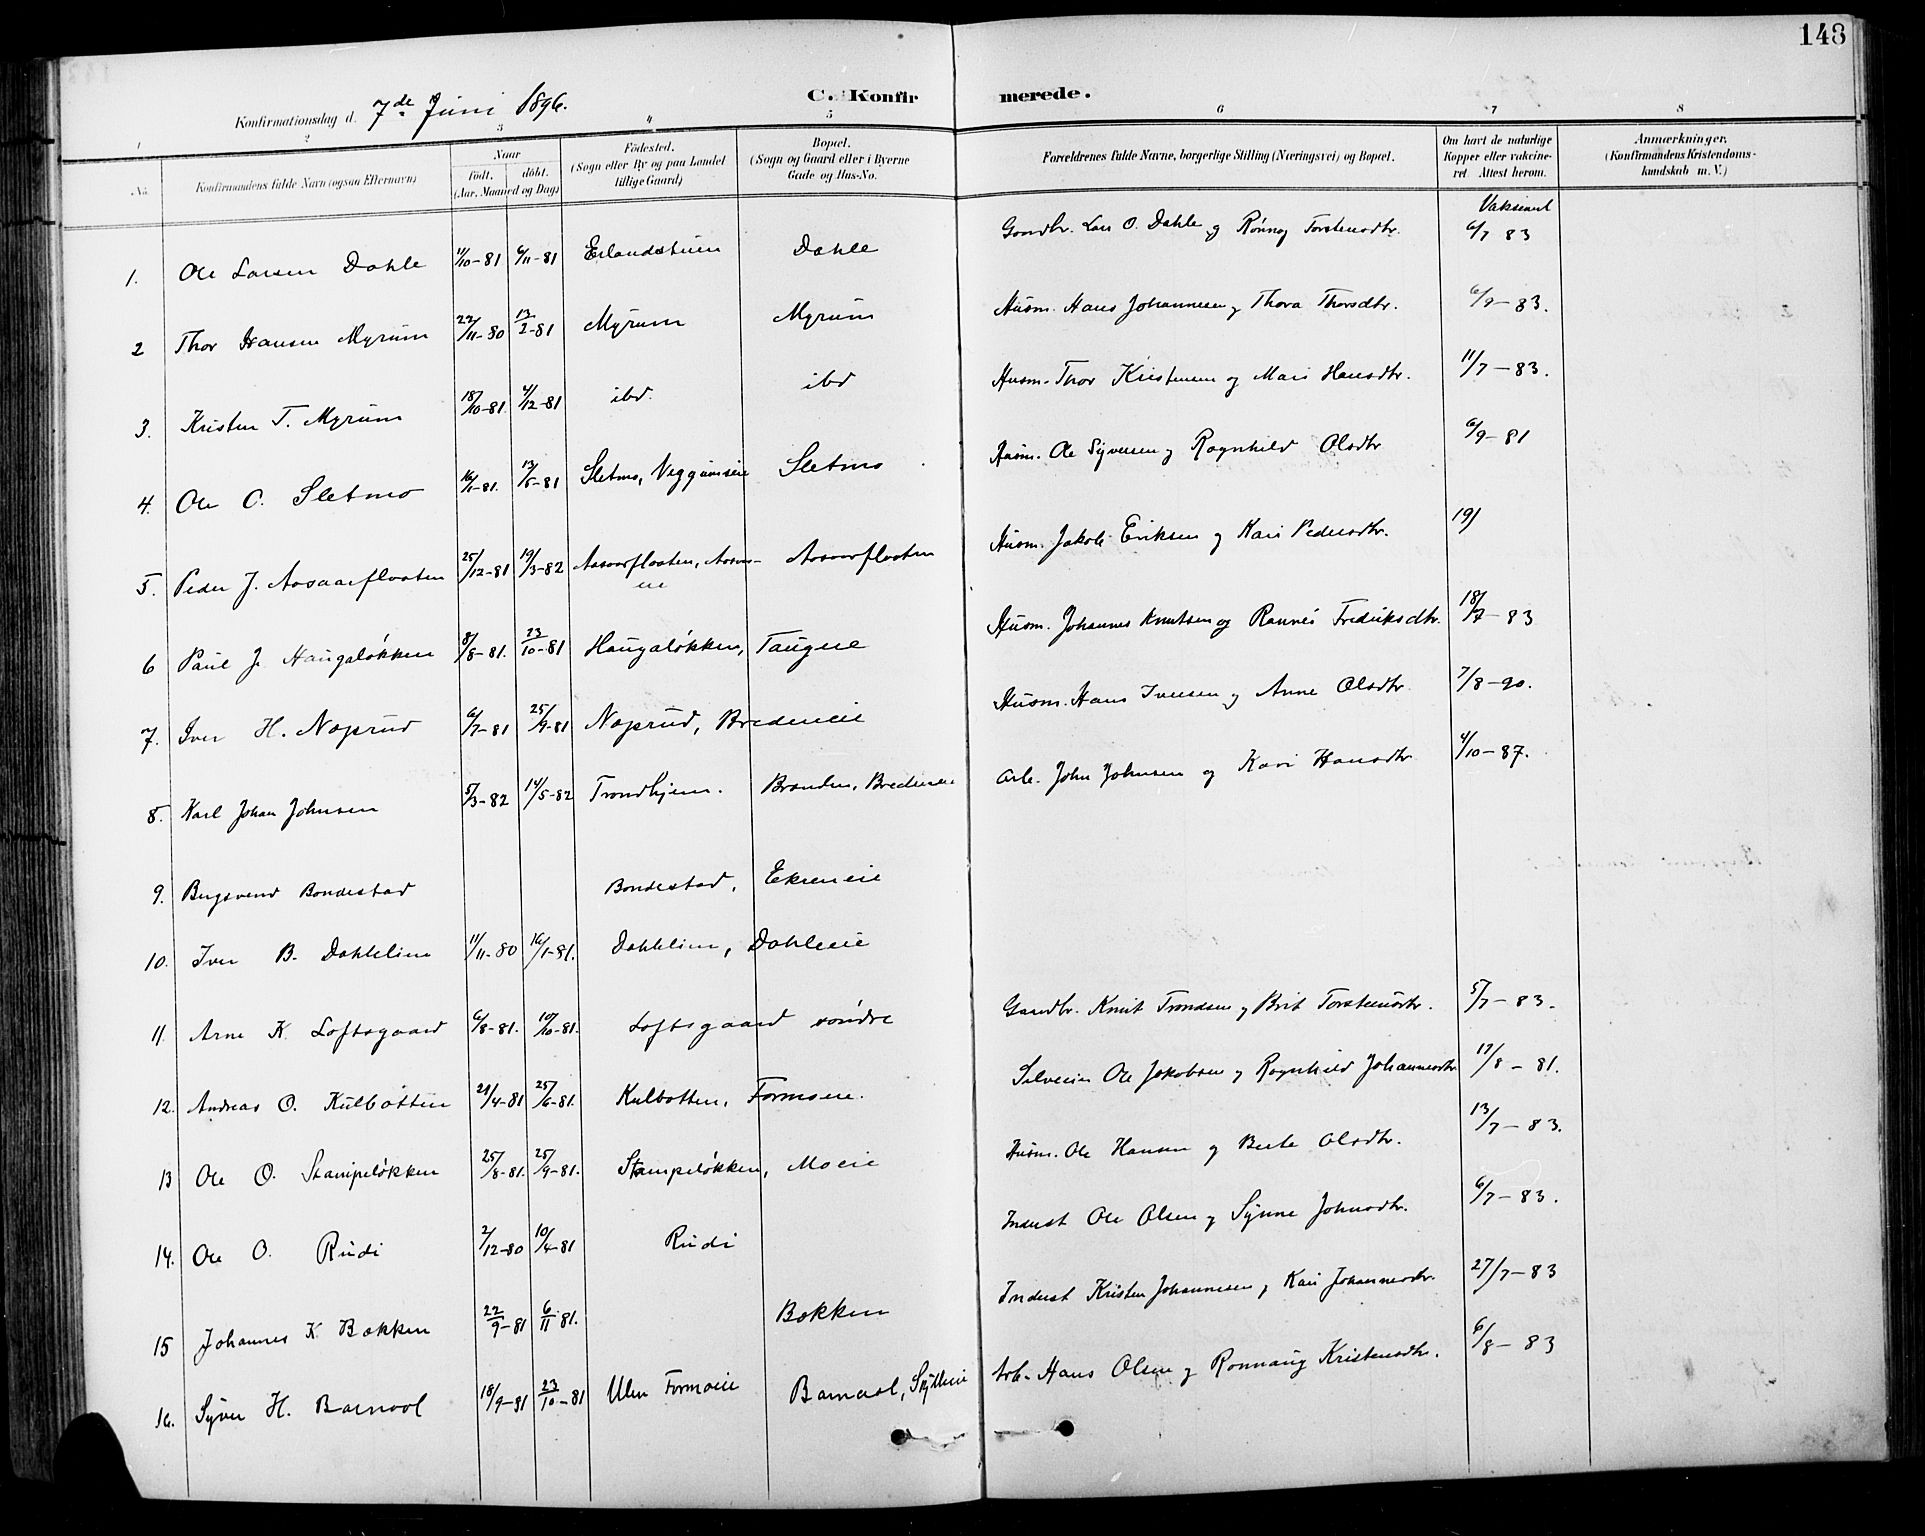 148
C. Konfirmerede.
Konfirmationsdag d. 7de Juni 1896.
1 2 3 4 5 6 7 8
No. Konfirmandens fulde Navn (ogsaa Efternavn) Naar födt. döbt. (Aar, Maaned og Dag) Födested. (Sogn eller By og paa Landet tillige Gaard) Bopæl. (Sogn og Gaard eller i Byerne Gade og Hus-No. Forældrenes fulde Navne, borgerlige Stilling (Næringsvei) og Bopæl. Om havt de naturlige Kopper eller vakcineret. Attest herom. Anmærkninger. (Konfirmandens Kristendomskundskab m. V.)
1. Ole Larsen Dahle 11/10-81 6/11-81 Erlandstuen Dahle Gaardbr. Lars O. Dahle og Rønnog Torstensdtr. Vaksinert 6/7 83
2 Thor Hansen Myrum 22/11-80 13/2-81 Myrum Myrum Husm. Hans Johannesen og Thora Thorsdtr. 6/9-83.
3. Kristen T. Myrum 18/10-81. 4/12-81 ibd. ibd Husm. Thor Kristensen og Mari Hansdtr. 11/7-83.
4. Ole O. Sletmo 16/1-81. 13/5-81 Sletmo, Veggumseie Sletmo Husm. Ole Syversen og Ragnhild Olsdtr 6/9-81
5. Peder J. Aasaarfloaten 25/12-81 19/3-82 Aasaarflaaten, Aasaareie Aasaarflaaten Husm. Jakob Eriksen og Kari Pedersdtr. 19/
6 Paul J. Haugaløkken 8/8-81. 23/10-81 Haugaløkken, Taugeie Husm. Johannes Knutsen og Rannei Fredriksdtr. 18/7-83
7. Iver H. Noprud 6/7-81 25/9-81 Noprud, Bredeneie Husm. Hans Iversen og Anne Olsdtr. 7/8-90.
8. Karl Johan Johnsen 5/3-82 14/5-82 Trondhjem. Branden, Bredeneie Arb. John Johnsen og Kari Hansdtr 4/10-87.
9. Bergsvend Bondestad Bondestad, Ekreneie
10. Iver B. Dahlelien 11/11-80 16/1-81. Dahlelien, Dahleeie
11. Arne K. Loftsgaard 6/8-81. 10/10-81. Loftsgaard söndre Gaardbr. Knut Trondsen og Brit Torstensdtr. 5/7-83.
12. Andreas O. Kulbotten 21/4-81 25/6-81. Kulbotten, Formoeie. Selveier Ole Jakobsen og Ragnhild Johannesdtr 17/8-81.
13 Ole O. Stampeløkken 25/8-81. 25/9-81. Stampeløkken, Moeie Husm. Ole Hansen og Berte Olsdtr. 13/7-83.
14. Ole O. Rudi 2/12-80 10/4-81 Rudi Inderst Ole Olsen og Synne Johnsdtr. 6/7-83.
15 Johannes K. Bakken 22/9-81 6/11-81. Bakken Inderst Kristen Johannesen og Kari Johannesdtr. 27/7-83
16. Syver H. Barnaol 18/9-81 23/10-81 Ulen Formoeie Barnaol, Skytteeie Arb. Hans Olsen og Rønnaug Kristensdtr. 6/8-83